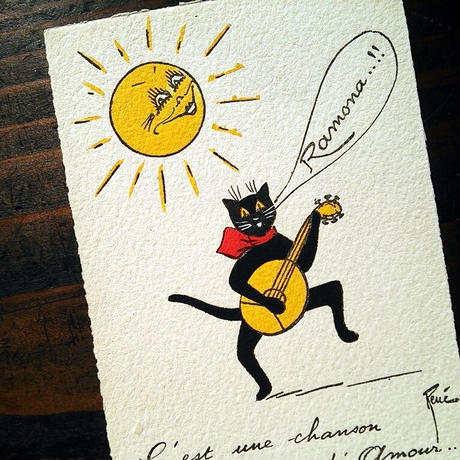 Ramona...!!
René
C'est une chanson
d'Amour..